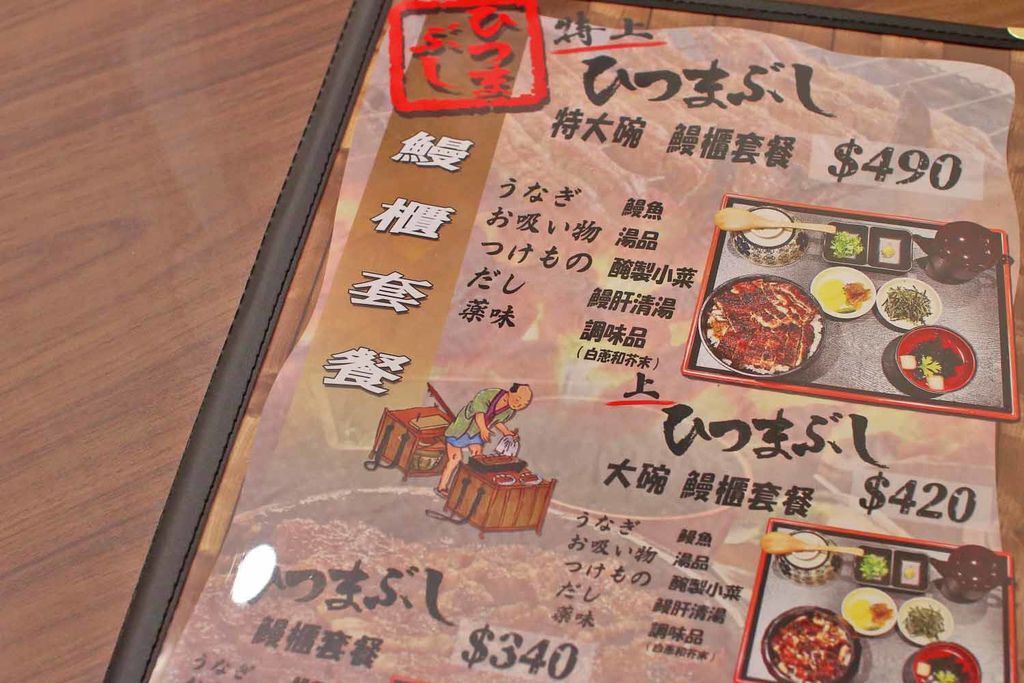 ひつま
ぶし
鰻櫃套餐
特上
ひつまぶし
特大碗 鰻櫃套餐 $490
うなぎ 鰻魚
お吸い物 湯品
つけもの 醃製小菜
だし 鰻肝清湯
薬味 調味品
(白蔥和芥末)
上
ひつまぶし
大碗 鰻櫃套餐 $420
うなぎ 鰻魚
お吸い物 湯品
つけもの 醃製小菜
だし 鰻肝清湯
薬味 調味品
(白蔥和芥末)
ひつまぶし
鰻櫃套餐 $340
うなぎ 鰻魚